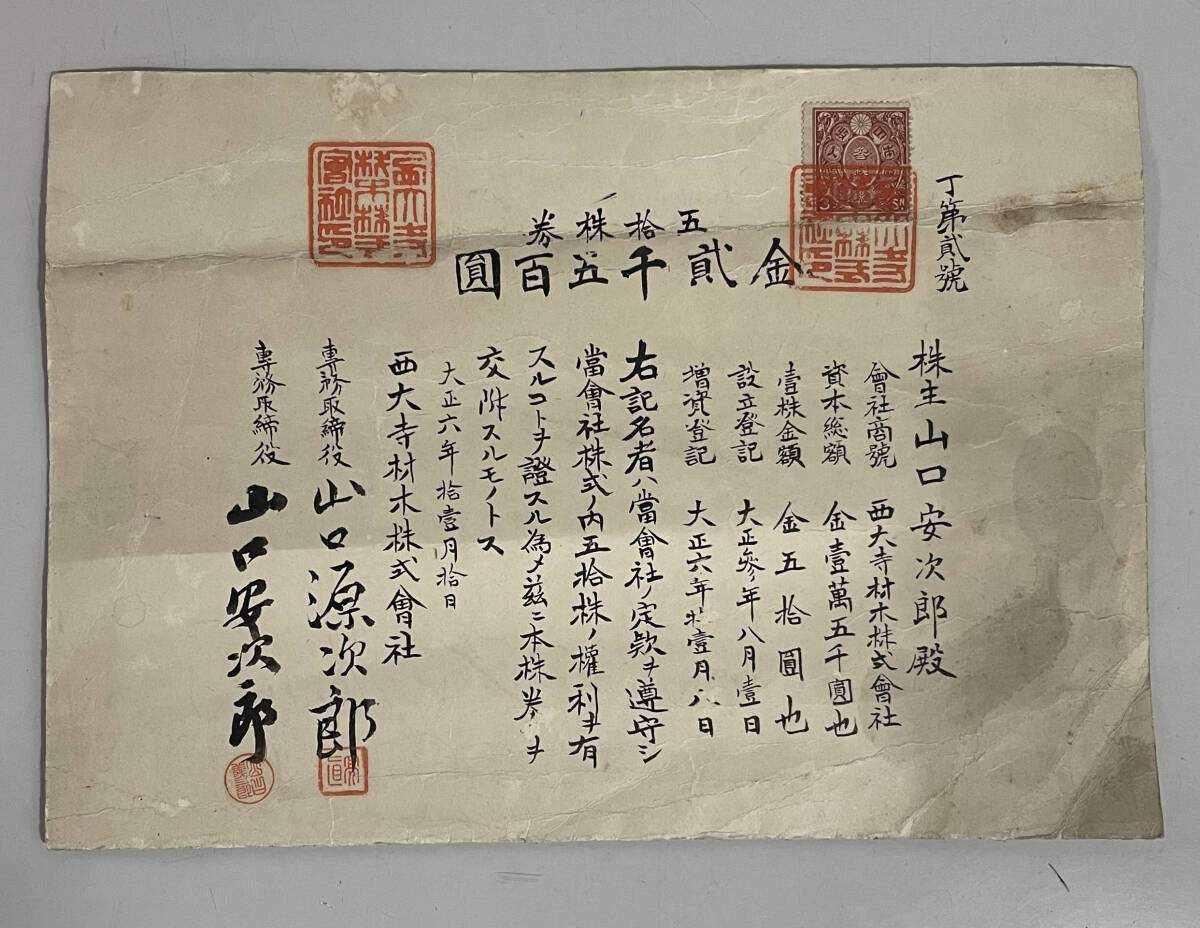 丁第貳號
五拾株券
金貳千五百圓
株主山口安次郎殿
會社商號 西大寺材木株式會社
資本総額 金壹萬五千圓也
壹株金額 金五拾圓也
設立登記 大正參年八月壹日
増資登記 大正六年拾壹月八日
右記名者ハ當會社ノ定款ヲ遵守シ
當會社株式ノ内五拾株ノ權利ヲ有
スルコトヲ證スル為メ茲ニ本株券ヲ
交附スルモノトス
大正六年拾壹月拾日
西大寺材木株式會社
專務取締役 山口源次郎
專務取締役 山口安次郎